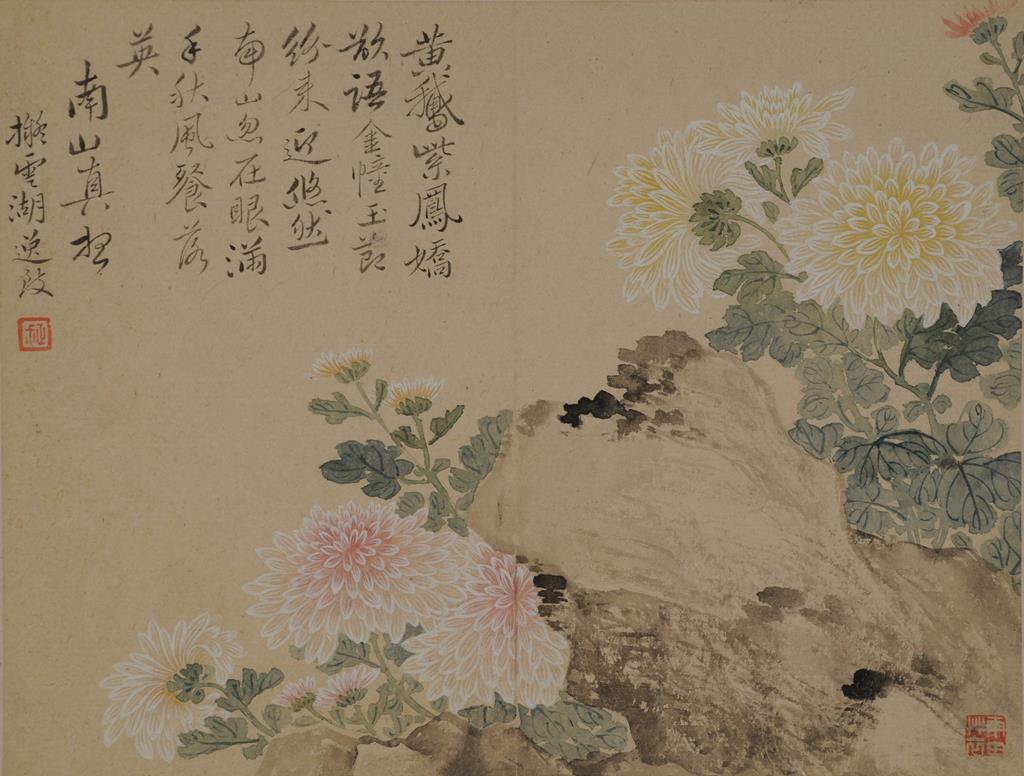 黄鵝紫鳳嬌
欲語金幢玉節
紛来迎悠然
南山忽在眼滿
手秋風餐落
英
南山真
擬雲湖逸致